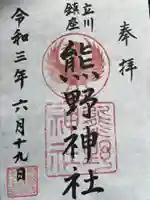 奉拝
立川
鎮座
熊野神社
令和三年六月十九日